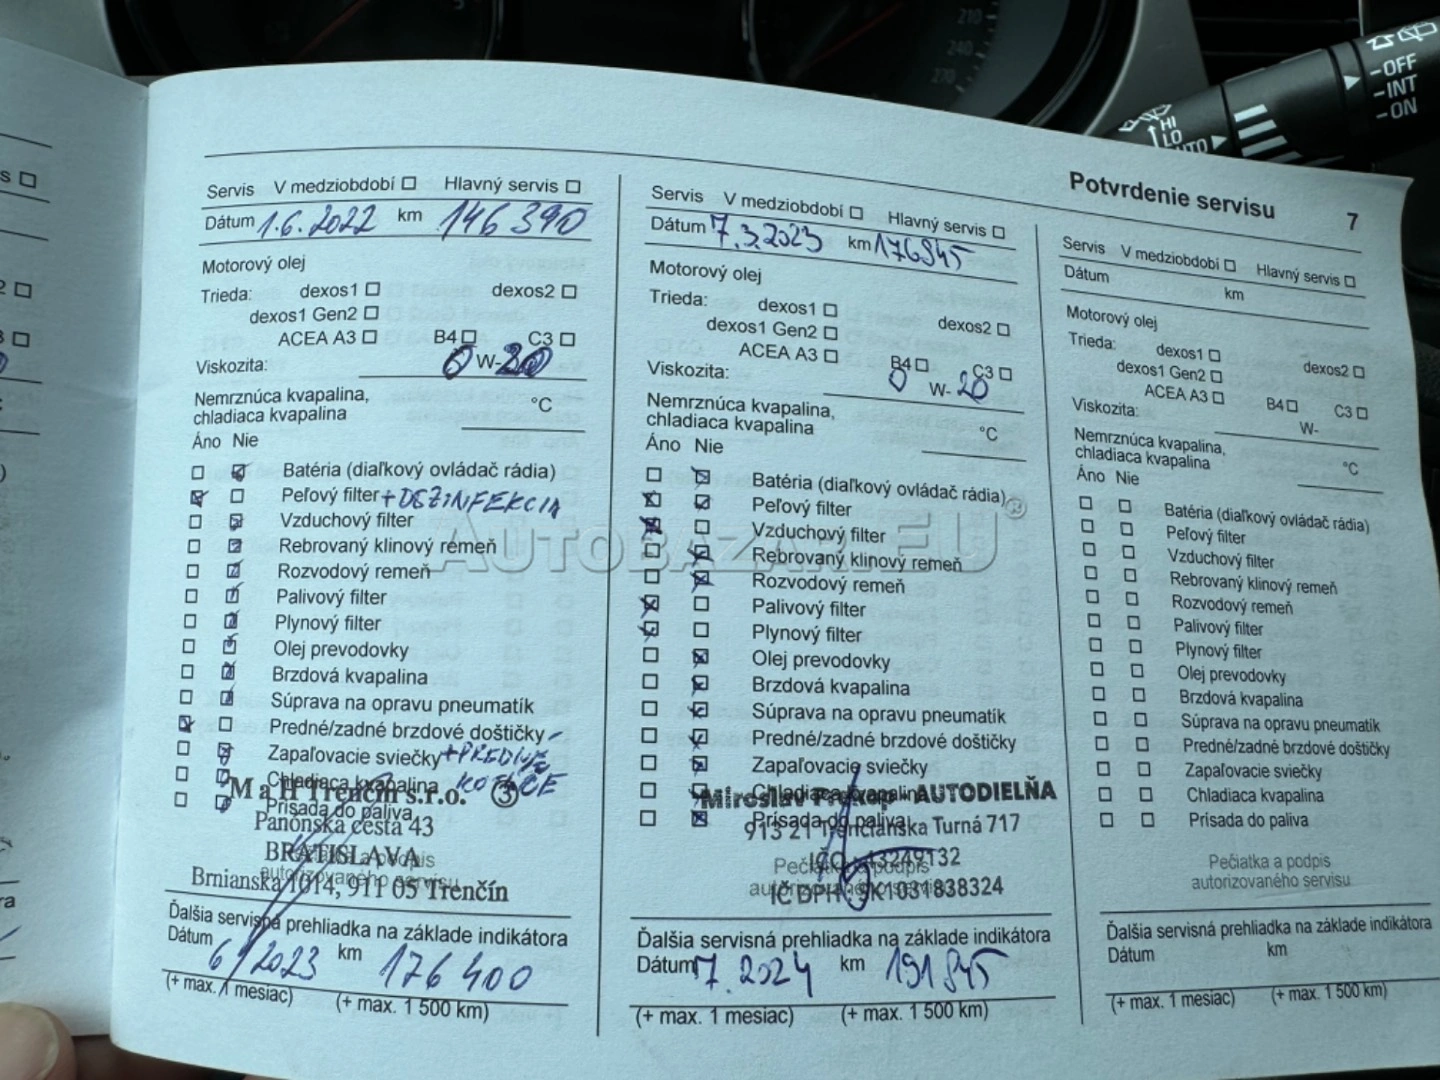 210
240
270
OFF
INT
ON
HI
LO
AUTO
Potvrdenie servisu 7
Servis V medziobdobí Hlavný servis
Dátum 1.6.2022 km 146 390
Motorový olej
Trieda: dexos1 dexos2
dexos1 Gen2
ACEA A3 B4 C3
Viskozita: 0 W-20
Nemrznúca kvapalina,
chladiaca kvapalina °C
Áno Nie
Batéria (diaľkový ovládač rádia)
Peľový filter + DEZINFEKCIA
Vzduchový filter
Rebrovaný klinový remeň
Rozvodový remeň
Palivový filter
Plynový filter
Olej prevodovky
Brzdová kvapalina
Súprava na opravu pneumatík
Predné/zadné brzdové doštičky
Zapaľovacie sviečky + PREDNÉ
Chladiaca kvapalina KOTÚČE
Prísada do paliva
M a H Trenčín s.r.o. 3
Panónska cesta 43
BRATISLAVA
Pečiatka a podpis
autorizovaného servisu
Brnianska 1014, 911 05 Trenčín
Ďalšia servisná prehliadka na základe indikátora
Dátum 6/2023 km 176 400
(+ max. 1 mesiac) (+ max. 1 500 km)
Servis V medziobdobí Hlavný servis
Dátum 7.3.2023 km 176845
Motorový olej
Trieda: dexos1 dexos2
dexos1 Gen2
ACEA A3 B4 C3
Viskozita: 0 W-20
Nemrznúca kvapalina,
chladiaca kvapalina °C
Áno Nie
Batéria (diaľkový ovládač rádia)
Peľový filter
Vzduchový filter
Rebrovaný klinový remeň
Rozvodový remeň
Palivový filter
Plynový filter
Olej prevodovky
Brzdová kvapalina
Súprava na opravu pneumatík
Predné/zadné brzdové doštičky
Zapaľovacie sviečky
Chladiaca kvapalina
Prísada do paliva
Miroslav Prekop - AUTODIELŇA
913 21 Trenčianska Turná 717
IČO: 13249132
Pečiatka a podpis
autorizovaného servisu
IČ DPH: SK1031838324
Ďalšia servisná prehliadka na základe indikátora
Dátum 7.2024 km 191845
(+ max. 1 mesiac) (+ max. 1 500 km)
Servis V medziobdobí Hlavný servis
Dátum km
Motorový olej
Trieda: dexos1 dexos2
dexos1 Gen2
ACEA A3 B4 C3
Viskozita: W-
Nemrznúca kvapalina,
chladiaca kvapalina °C
Áno Nie
Batéria (diaľkový ovládač rádia)
Peľový filter
Vzduchový filter
Rebrovaný klinový remeň
Rozvodový remeň
Palivový filter
Plynový filter
Olej prevodovky
Brzdová kvapalina
Súprava na opravu pneumatík
Predné/zadné brzdové doštičky
Zapaľovacie sviečky
Chladiaca kvapalina
Prísada do paliva
Pečiatka a podpis
autorizovaného servisu
Ďalšia servisná prehliadka na základe indikátora
Dátum km
(+ max. 1 mesiac) (+ max. 1 500 km)
AUTOBAZAR.EU®